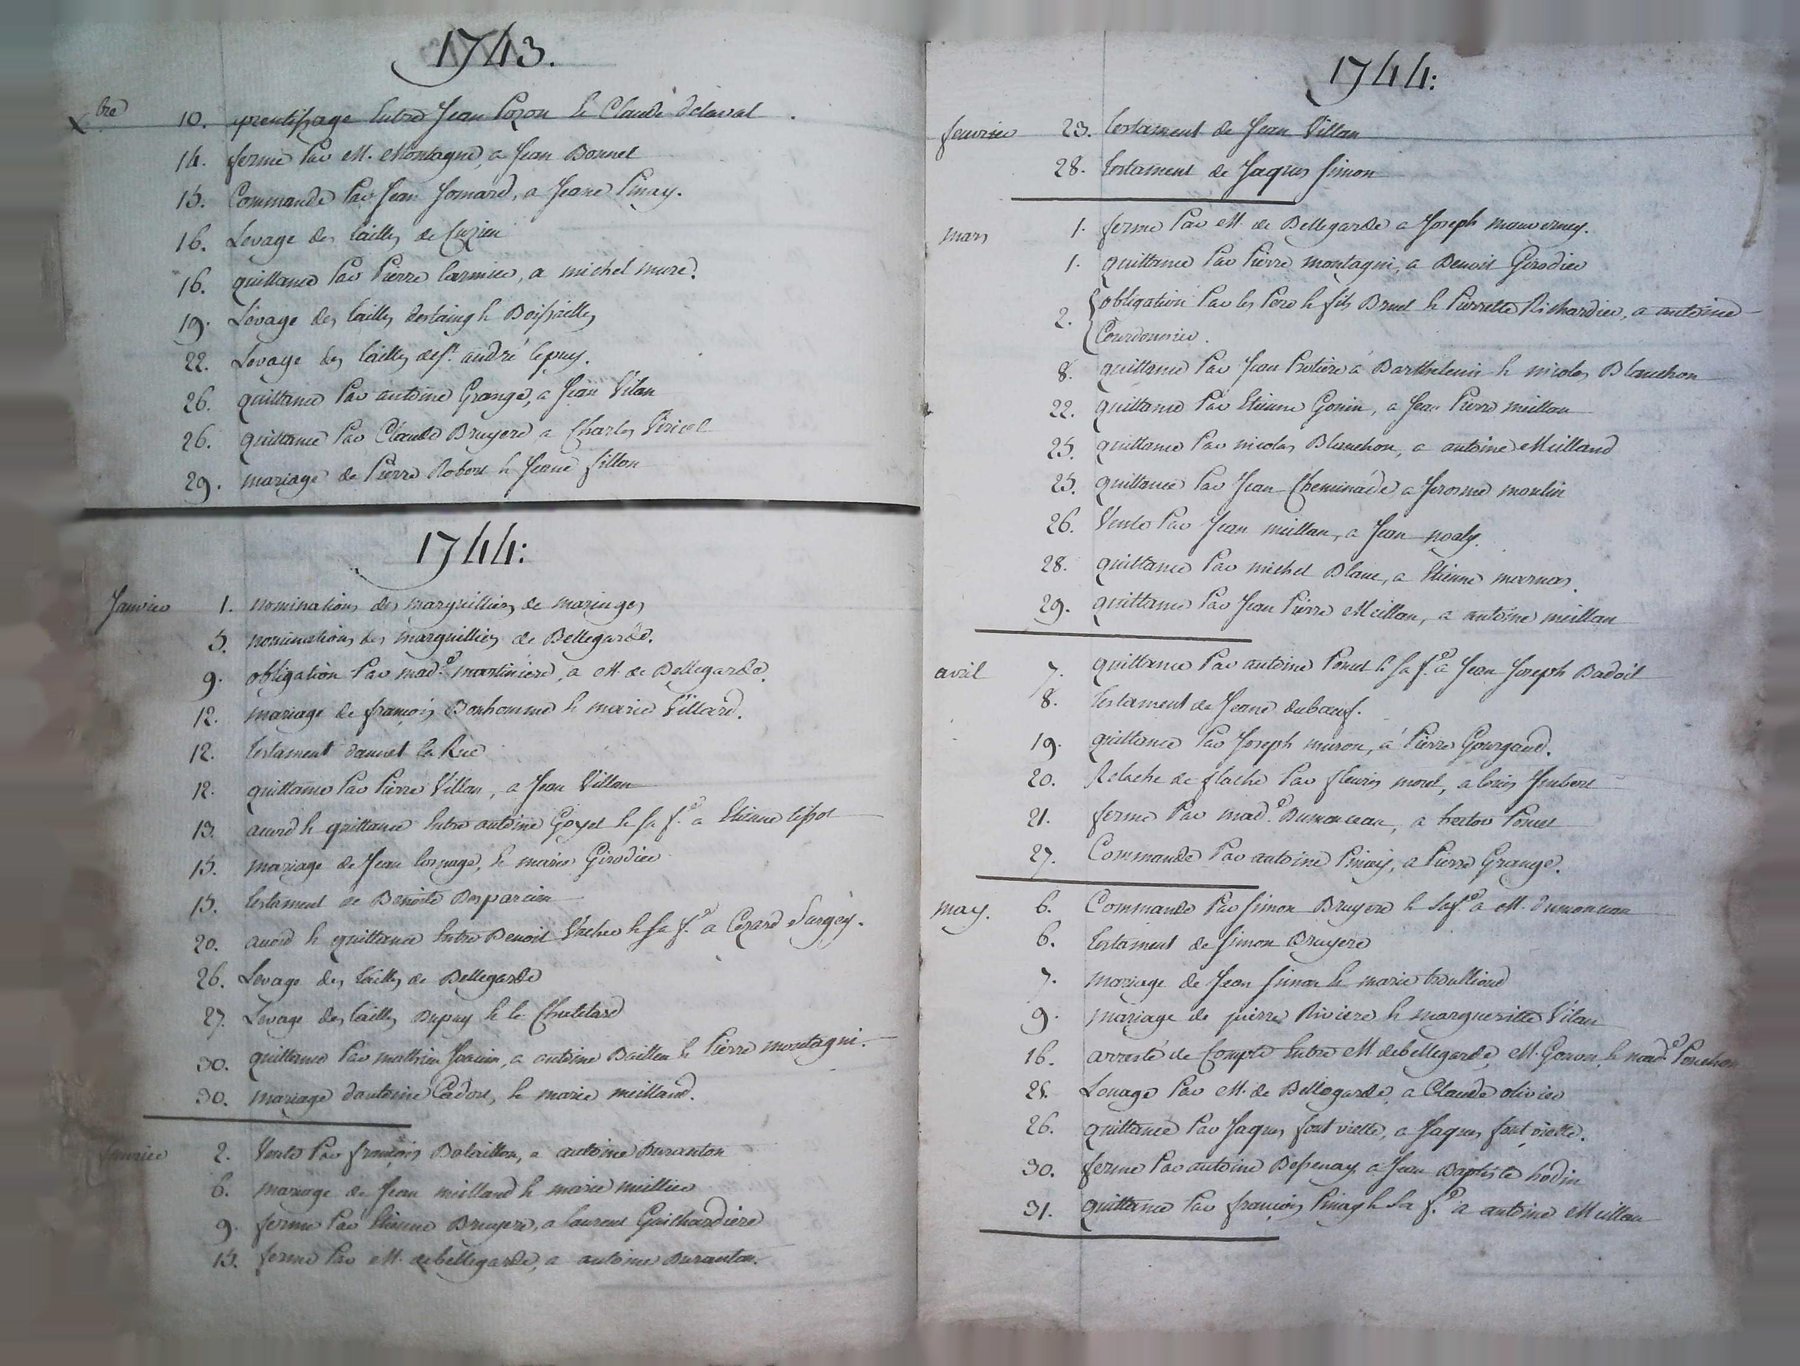 1743.
Xbre 10. aprentissage Entre Jean Pozon & Claude delaval.
14. ferme Par M. Montagne, a Jean Bonnet
15. Commande Par Jean Jomard, a Jeane Pinay.
16. Levage des tailles de Cuzieu
16. quittance Par Pierre Carmier, a michel mure.
19. Levage des tailles destaing & Boissailles
22. Levage des tailles de st. andré le puy.
26. quittance Par antoine Grange, a Jean Vilan
26. quittance Par Claude Bruyere a Charles Viricel
29. mariage de Pierre Robert & Jeane fillon
1744:
Janvier 1. nominations des marguilliers de maringes
5. nominations des marguilliers de Bellegarde.
9. obligation Par made. martiniere, a M. de Bellegarde.
12. mariage de françois Bonhomme & marie Villard.
12. testament la Rue
12. quittance Par Pierre Villan, a Jean Villan
13. acord & quittance Entre antoine Goyet & sa fe. a Etienne
15. mariage de Jean & marie Girodier
15. testament de Benoite Desparain
20. acord & quittance Entre Benoit Vacher & sa fe. a Cezard Targey.
26. Levage des tailles de Bellegarde
27. Levage des tailles Dupuy & le Chatelard
30. quittance Par mathieu a antoine Baillen & Pierre montagni.
30. mariage dantoine Cadort, & marie meilland.
fevrier 2. Vente Par françois Bataillon, a antoine Duranton
6. mariage de Jean meilland & marie
9. ferme Par Etienne Bruyere, a Laurent Guichardiere
15. ferme Par M. debellegarde, a antoine Duranton.
1744:
fevrier 23. testament de Jean Villan
28. testament de Jaques simon
mars 1. ferme Par M. de Bellegarde a Joseph
1. quittance Par Pierre montagni, a Benoit Girodier
2. obligation Par les Pere & fils Bruel & Pierrette Richardier, a antoine
Courdonnier.
8. quittance Par Jean a Barthelemi & nicolas Blanchon
22. quittance Par Etienne Gonin, a Jean Pierre meillan
25. quittance Par nicolas Blanchon, a antoine Meilland
25. quittance Par Jean Cheminade a Jerosme moulin
26. Vente Par Jean meillan, a Jean noaly.
28. quittance Par michel Blanc, a Etienne marnas.
29. quittance Par Jean Pierre Meillan, a antoine meillan
avril 7. quittance Par antoine Poncet & sa fe. a Jean Joseph Badoil
8. testament de Jeane duboeuf.
19. quittance Par Joseph muron, a Pierre Gourgaud.
20. Relache de flache Par fleurie morel, a loüis Jmbert
21. ferme Par made. Dumonceau, a hector Poncet
27. Commande Par antoine Pinay, a Pierre Grange.
may. 6. Commande Par simon Bruyere & sa fe. a M. dumonceau
6. testament de simon Bruyere
7. mariage de Jean simon & marie
9. mariage de pierre Riviere & margueritte Vilan
16. arresté de Compte Entre M. debellegarde, M. Gonon, & made. Ponchon
25. Louage Par M. de Bellegarde, a Claude olivier
26. quittance Par Jaques fontvielle, a Jaques fontvielle.
30. ferme Par antoine Bessenay, a Jean Baptiste hodin
31. quittance Par françois Pinay & sa fe. a antoine Meillan